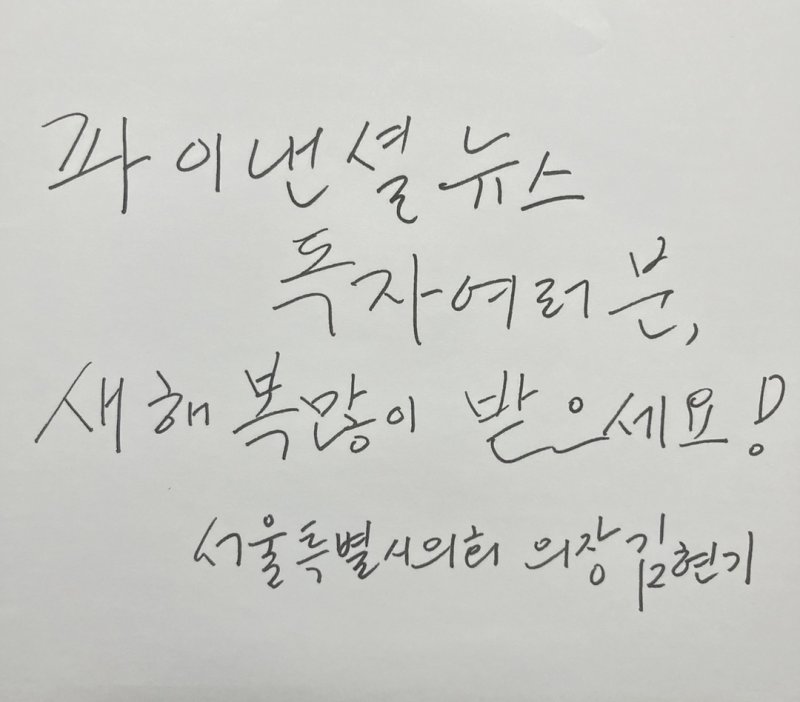 파이낸셜뉴스
독자여러분,
새해 복많이 받으세요!
서울특별시의회 의장김현기